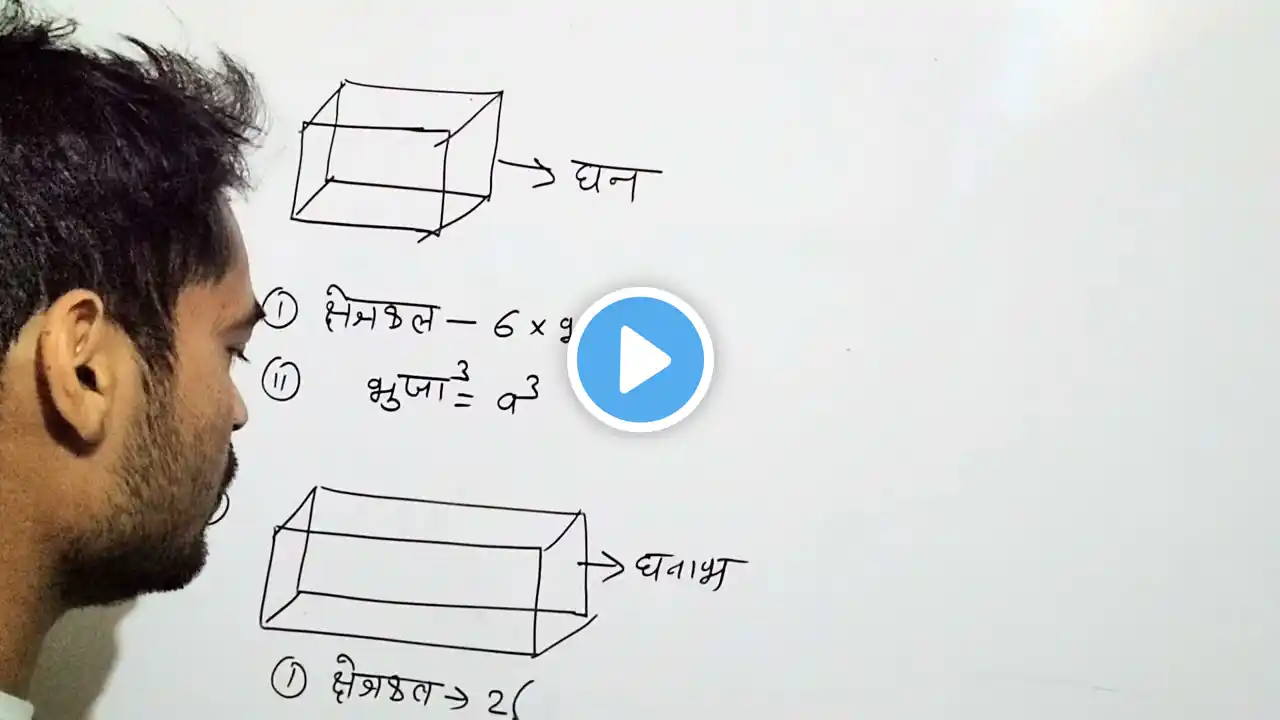 → घन
① क्षेत्रफल — 6 ×
② भुजा³ = a³
→ घनाभ
① क्षेत्रफल → 2(